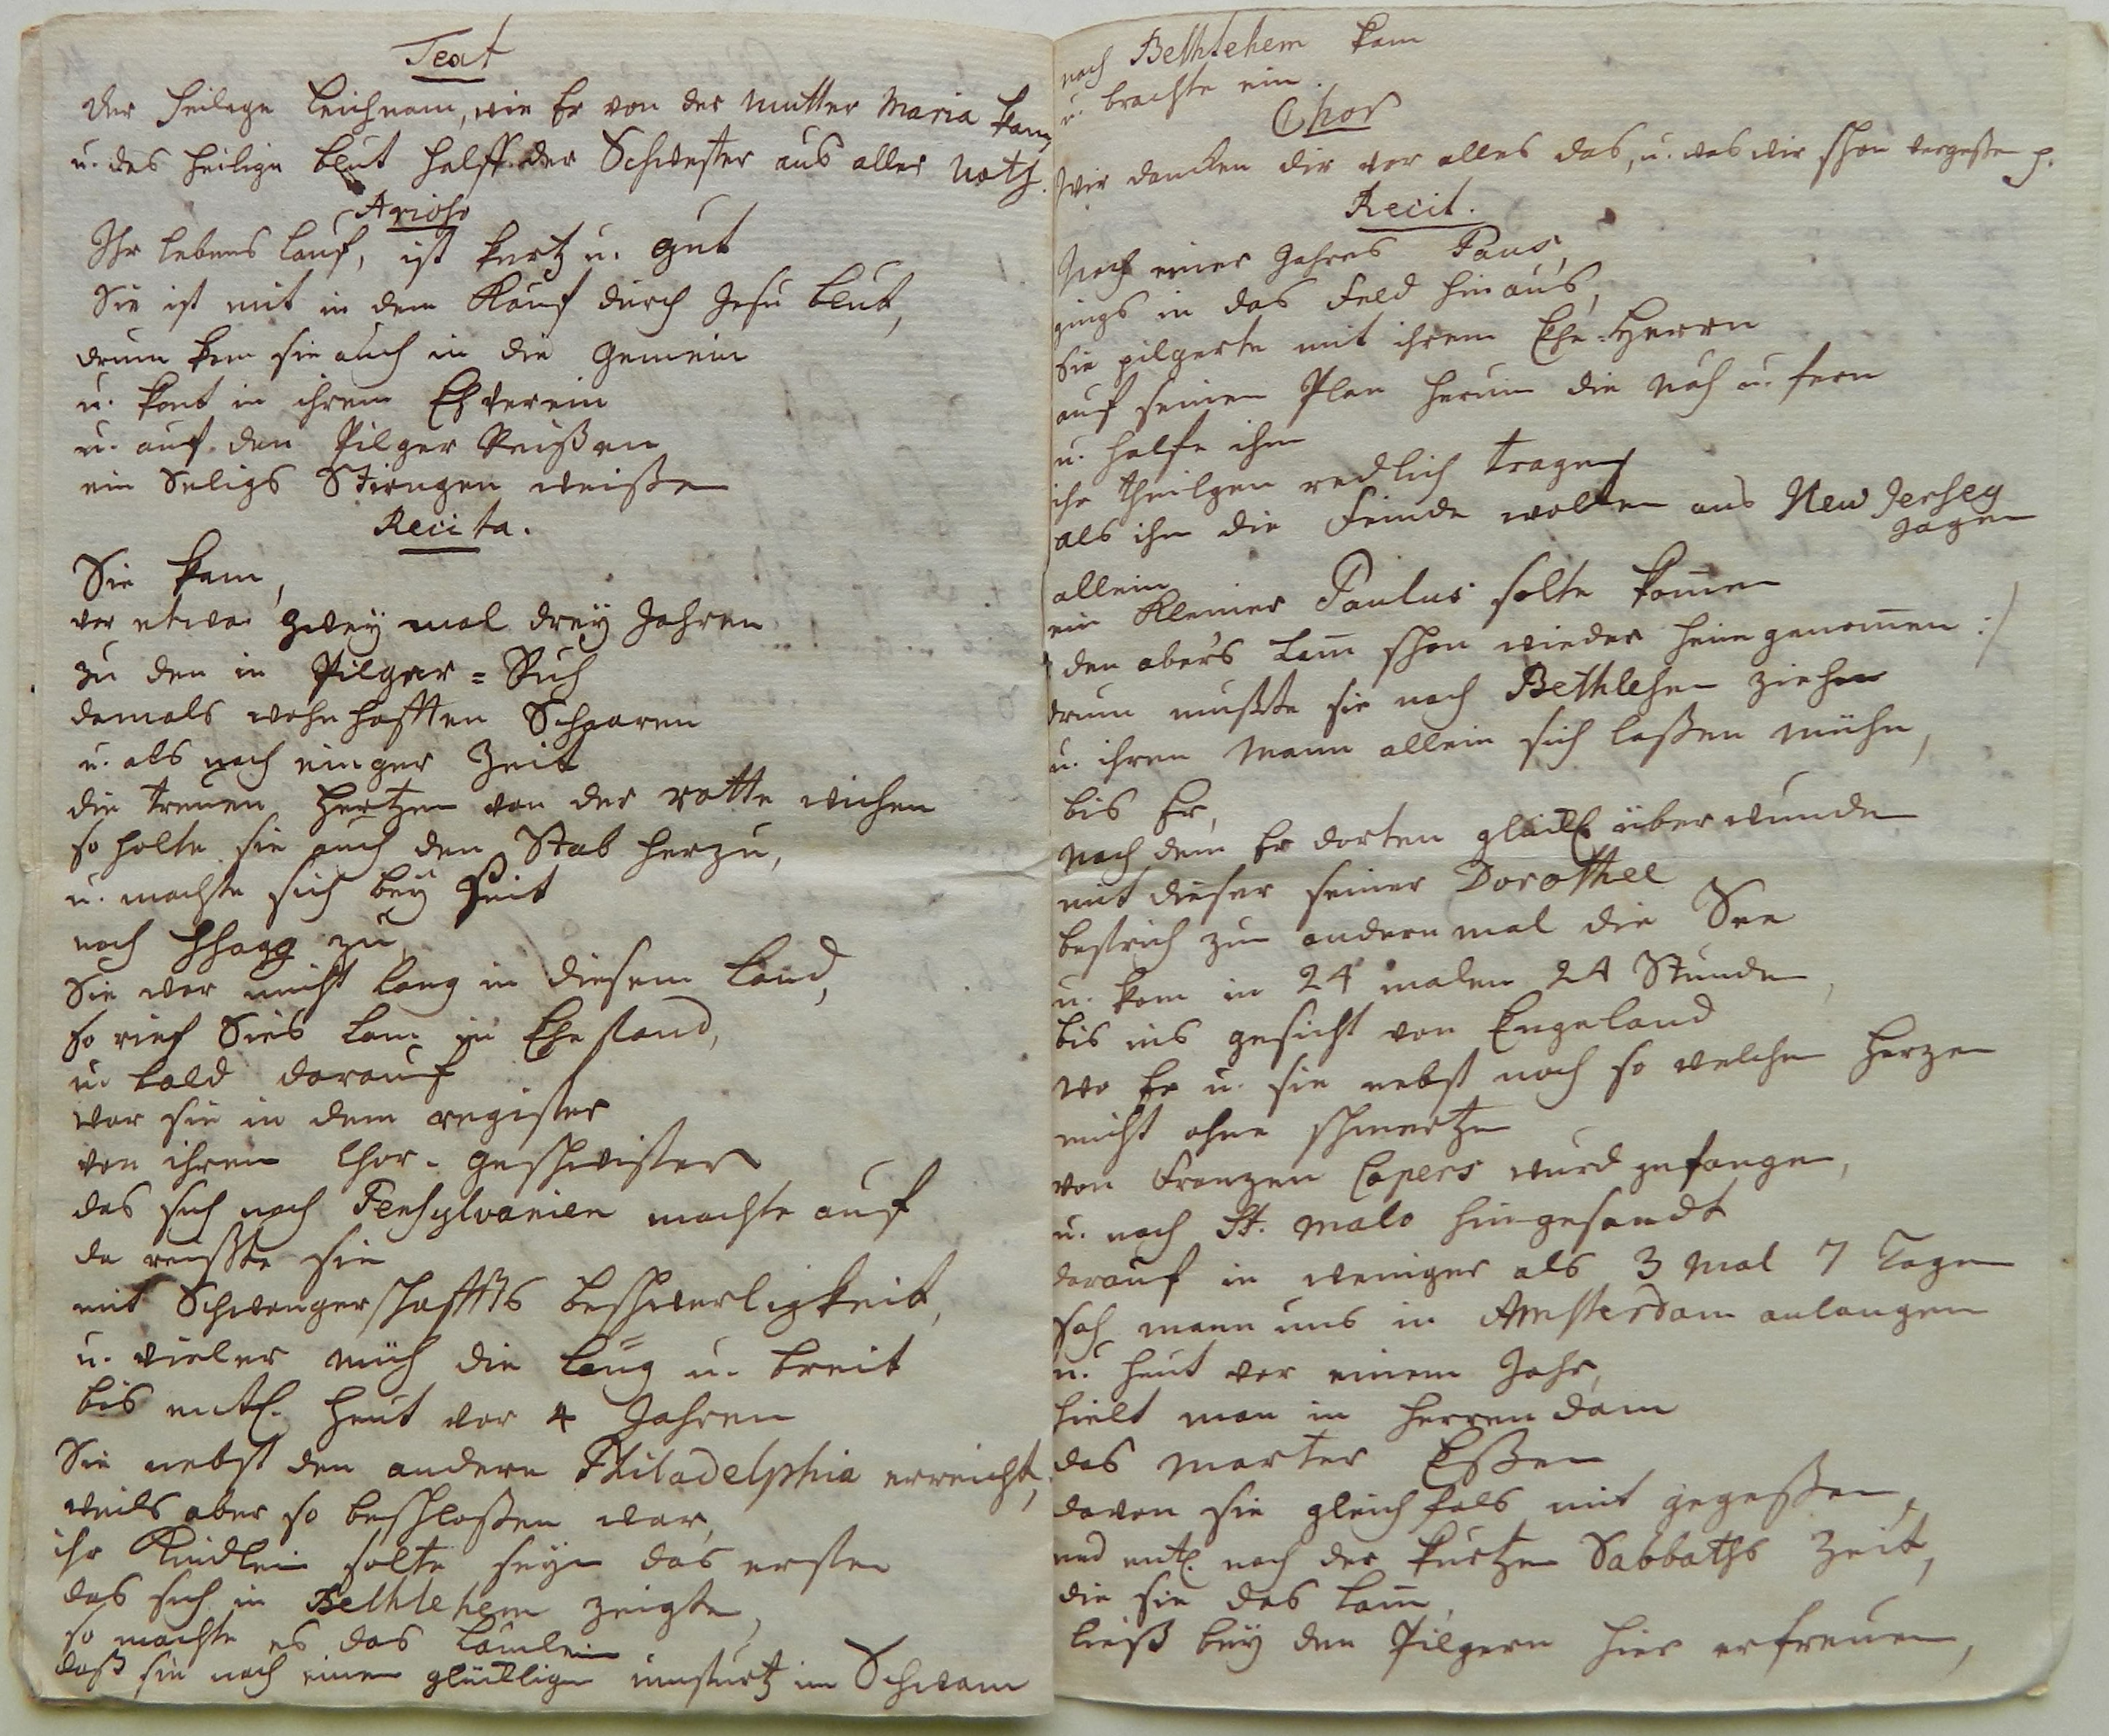 Text
Der heilge Leichnam, wie Er von der Mutter Maria kam,
u. das heilige Blut helff der Schwester aus aller Noth.
Arioso
Ihr lebens lauf, ist kurtz u. gut
Sie ist mit in dem Kauf durch Jesu Blut,
drum kam sie auch in die Gemein
u. kont in ihrem Ehverein
u. auf den Pilger Reißen
ein Seligs
Recita.
Sie kam,
vor etwa zwey mal drey Jahren
zu den in Pilger=Ruh
damals wohnhafften Schaaren
u. als nach einger Zeit
die treuen Hertzen von der rotte wichen
so holte sie auch den Stab herzu,
u. machte sich bey Zeit
nach HHaag zu,
Sie war nicht lang in diesem Land,
so rief Sies Lam in Ehestand,
u. bald darauf
war sie in dem register
von ihrem Chor-geschwister
das sich nach Pensylvanien machte auf
da reißte sie
mit Schwangerschaffts beschwerligkeit,
u. vieler müh die läng u. breit
bis entl. heut vor 4 Jahren
Sie nebst den andern Philadelphia erreicht,
weils aber so beschloßen war,
ihr Kindlein solte seyn das erste
das sich in Bethlehem zeigte,
so machte es das Lämlein
daß sie nach einem glücklign umsturtz im Schwam
nach Bethlehem kam
u. brachte ein.
Chor
Wir dancken dir vor alles das, u. was wir schon vergeßen p.
Recit.
Nach einer Jahres Paus,
gings in das Feld hinaus,
Sie pilgerte mit ihrem Ehe-Herrn
auf seinem Plan herum die näh u. fern
u. halfe ihm
ihr theilgen redlich tragen
als ihn die Feinde wolten aus New Jersey
jagen
allein
ein Kleiner Paulus solte kom̅en
den aber's Lam̅ schon wieder heimgenom̅en :/
drum mußte sie nach Bethlehem ziehen
u. ihren Mann allein sich laßen mühn,
bis Er,
nach dem Er dorten glückl. überwunden
mit dieser seiner Dorothee
bestrich zum andern mal die See
u. kam in 24 malen 24 Stunden,
bis ins gesicht von Engeland
wo Er u. sie nebst noch so welchen Herzen
nicht ohne schmertzen
von Franzen Capers wurd gefangen,
u. nach St. Malo hingesandt
darauf in weniger als 3 mal 7 Tagen
sah mann uns in Amsterdam anlangen
u. heut vor einem Jahr,
hielt man in Herrendam
das Marter Eßen
davon sie gleichfals mit gegeßen,
und entl. nach der kurtzen Sabbaths Zeit,
die sie das Lam̅,
ließ bey den Pilgern hier erfreuen,